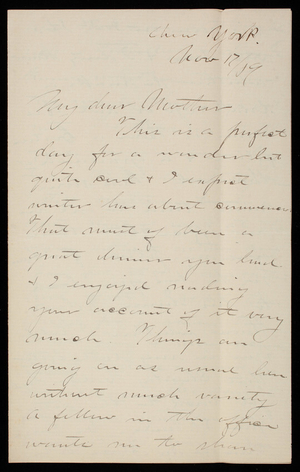 New York.
Nov 17/79
My dear Mother
This is a perfect
day for a wonder but
quite cool & I expect
winter has about commenced
That must of been a
great dinner you had
& I enjoyed reading
your account of it very
much. Things are
going on as usual here
without much variety
A fellow in the office
wants me to